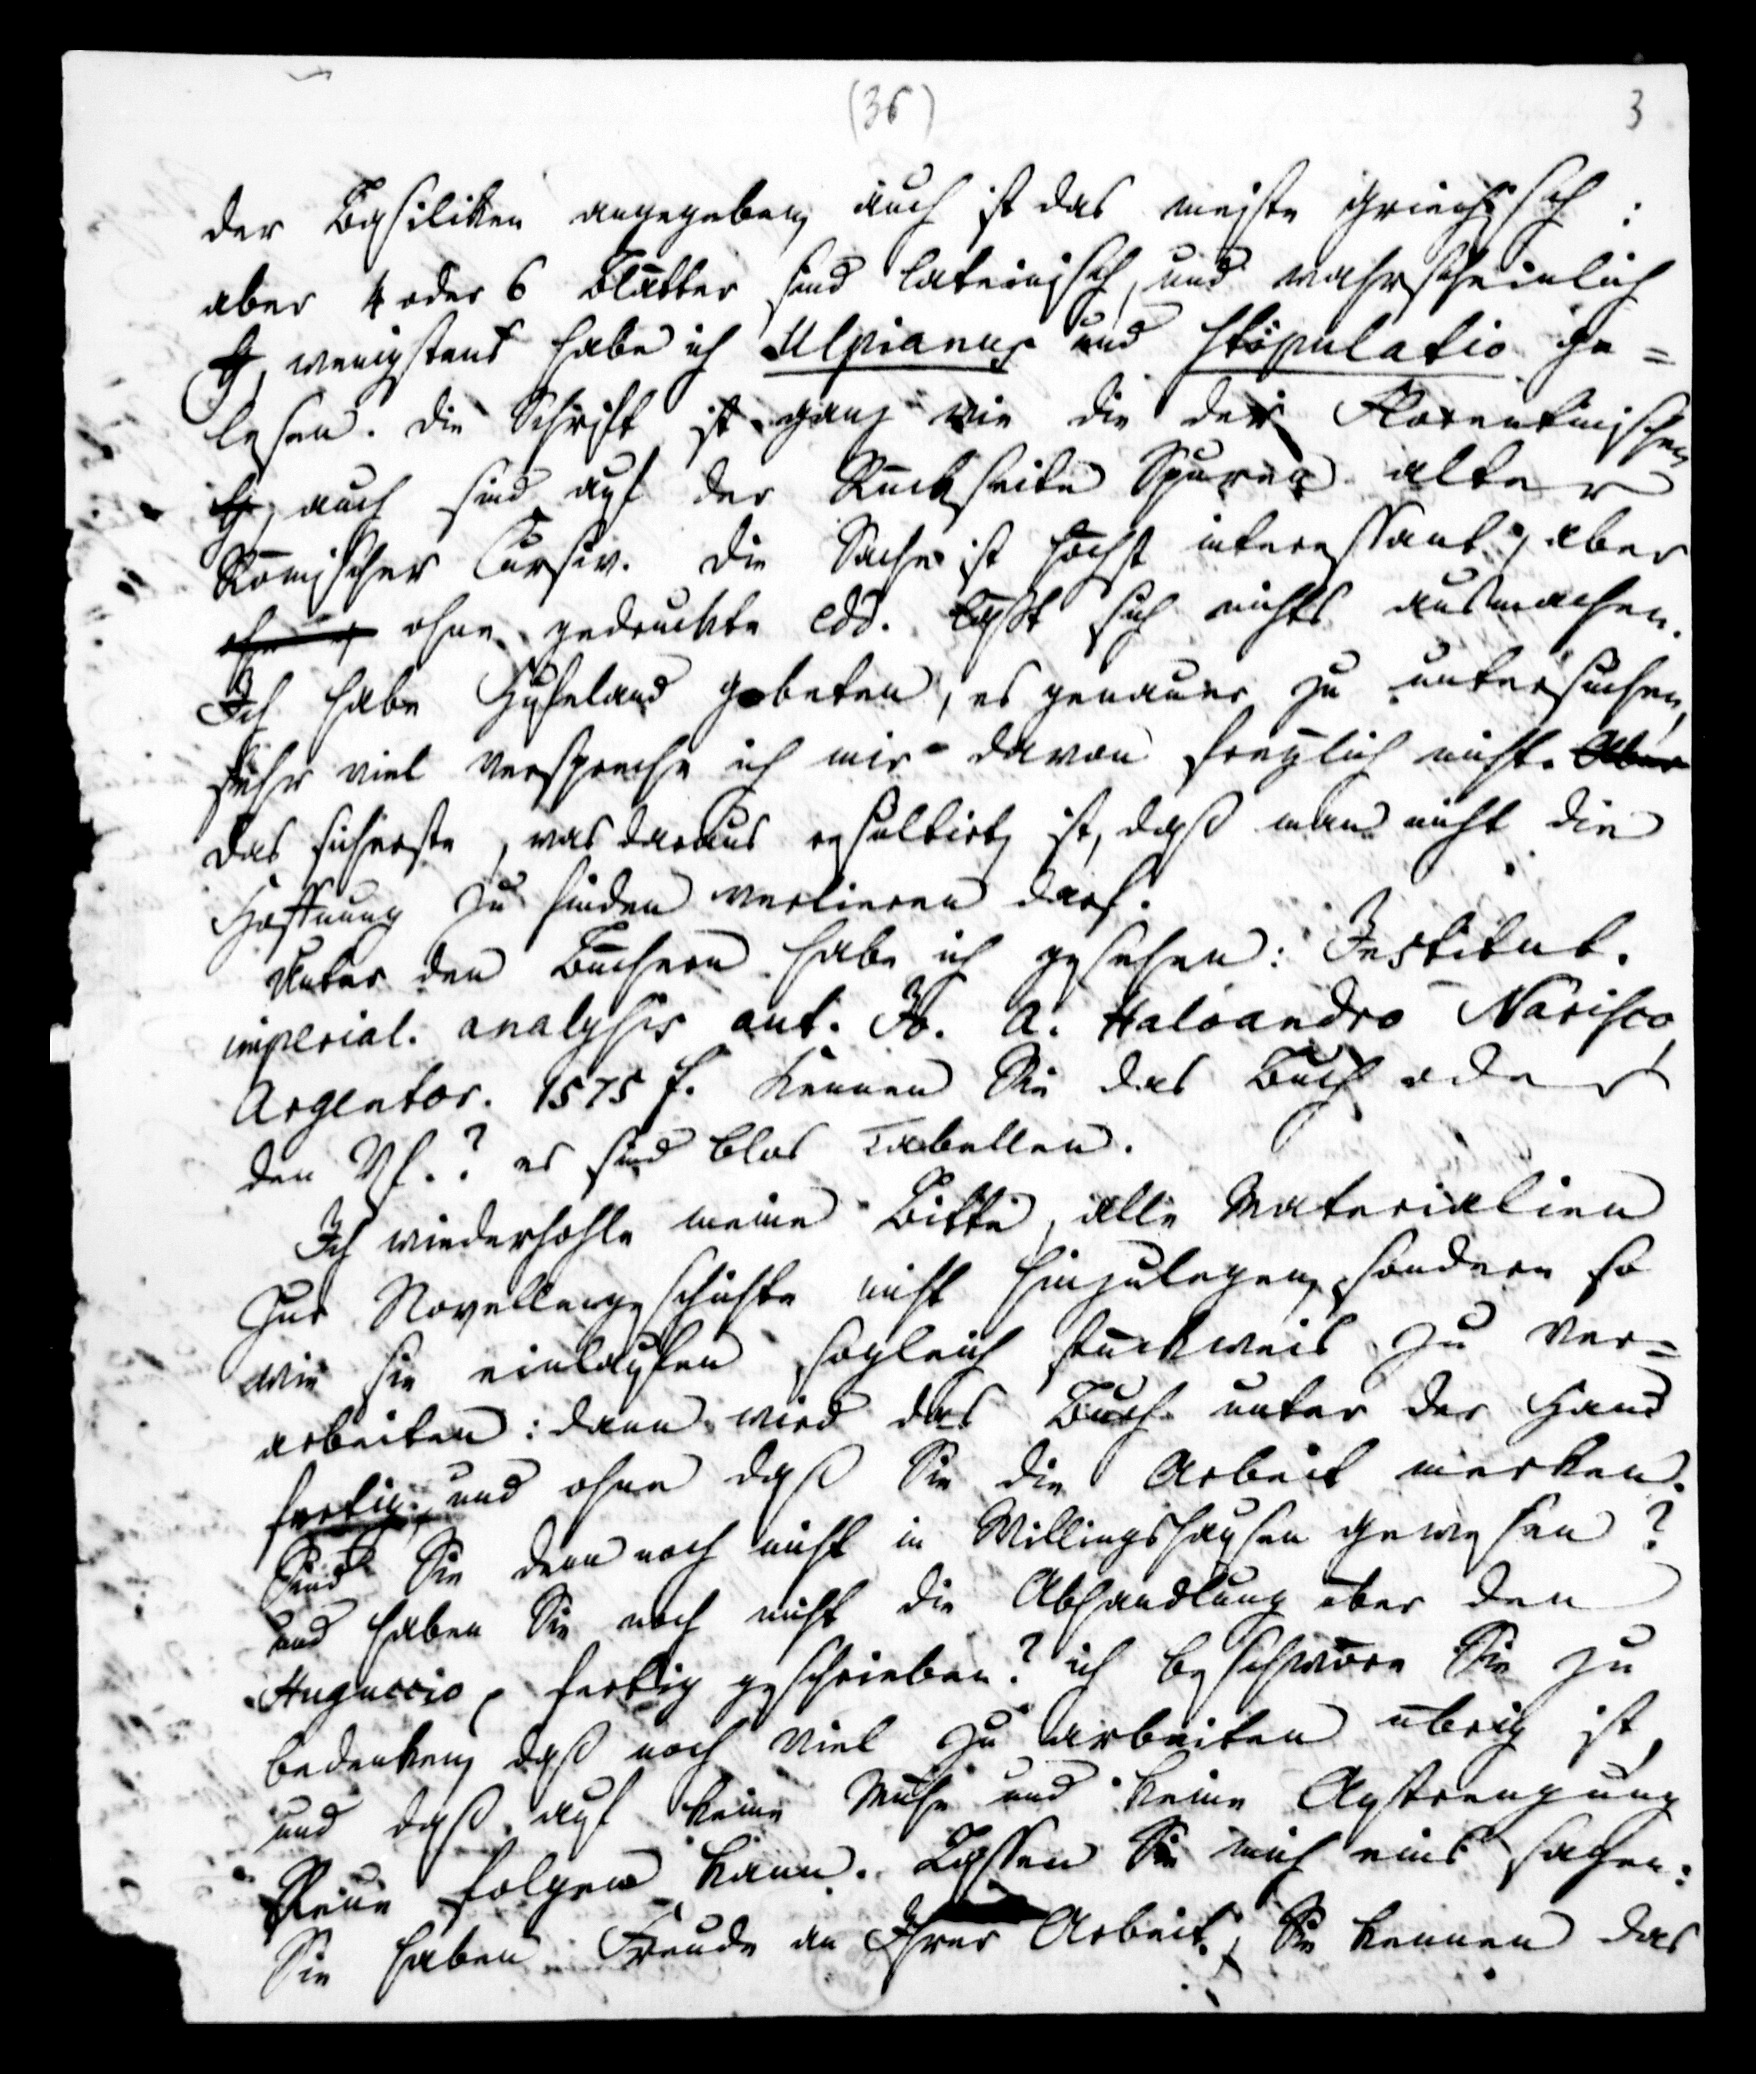 (36)
3
der Basiliken angegeben, auch ist das meiste Griechisch:
aber 4 oder 6 Blätter sind lateinisch, und wahrscheinlich
wenigstens habe ich Ulpianus und stipulatio ge=
lesen. Die Schrift ist ganz wie die der Florentinischen
auch sind auf der Rückseite Spuren alter
Römischer Cursiv. Die Sache ist höchst interessant, aber
ohne gedruckte edd. läßt sich nichts ausmachen.
Ich habe Hufeland gebeten, es genauer zu untersuchen,
sehr viel verspreche ich mir davon freylich nicht. Aber
das sicherste, was daraus resultirt, ist, daß man nicht die
Hoffnung zu finden verlieren darf.
Unter den Büchern habe ich gesehen: Institut.
imperial. analysis aut. Jo. A. Haloandro Narisco,
Argentor. 1575 f. Kennen Sie das Buch oder
den Vf.? es sind blos Tabellen.
Ich wiederhohle meine Bitte, alle Materialien
zur Novellengeschichte nicht hinzulegen, sondern so
wie sie einlaufen sogleich stückweis zu ver=
arbeiten: dann wird das Buch unter der Hand
fertig, und ohne daß Sie die Arbeit merken.
Sind Sie denn noch nicht in Willingshausen gewesen?
und haben Sie noch nicht die Abhandlung über den
Huguccio, fertig geschrieben? ich beschwöre Sie zu
bedenken, daß noch viel zu arbeiten übrig ist,
und daß auf keine Mühe und keine Anstrengung
Reue folgen kann. Lassen Sie mich eins sagen:
Sie haben Freude an Ihrer Arbeit, Sie kennen das